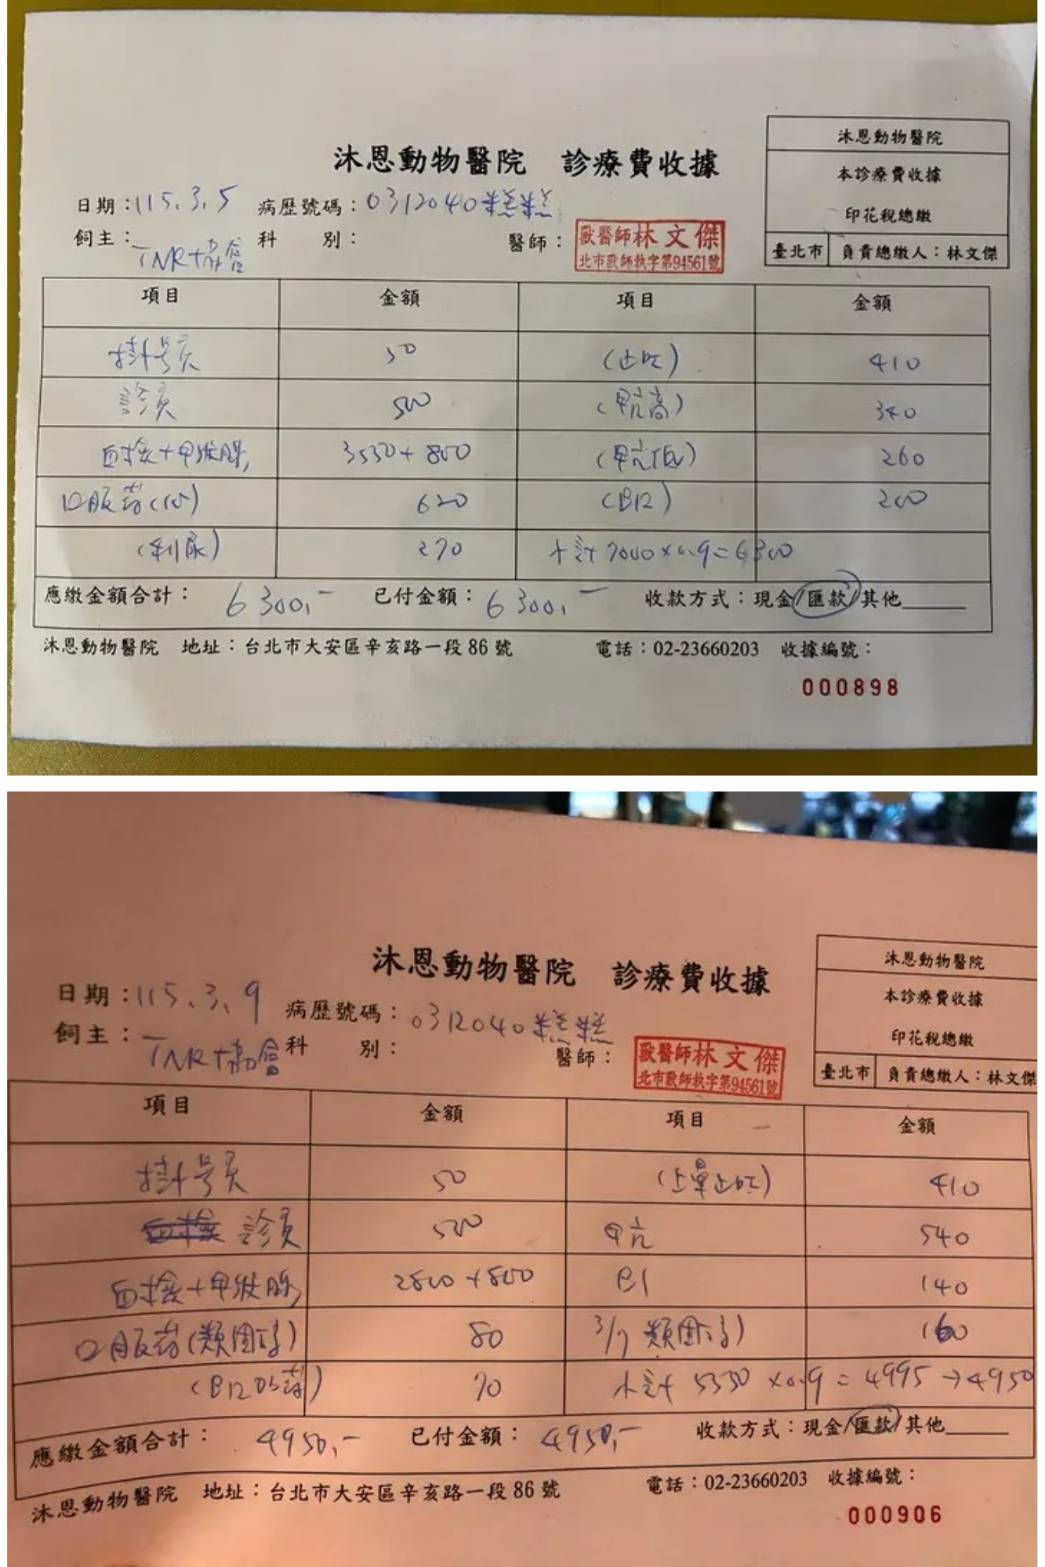 沐恩動物醫院 診療費收據
沐恩動物醫院
本診療費收據
印花稅總繳
臺北市 負責總繳人：林文傑
日期：115.3.5 病歷號碼：0312040糕糕
飼主：TNR協會 科 別： 醫師：
獸醫師林文傑
北市獸師執字第94561號
項目 金額 項目 金額
掛号費 50 (止吐) 410
診費 500 (甲亢高) 340
血檢+甲狀腺 3550+800 (甲亢低) 260
口服药 620 (B12) 200
(利尿) 270 小計 7000×0.9=6300
應繳金額合計：6300,- 已付金額：6300,- 收款方式：現金/匯款/其他
沐恩動物醫院 地址：台北市大安區辛亥路一段86號 電話：02-23660203 收據編號：
000898
沐恩動物醫院 診療費收據
沐恩動物醫院
本診療費收據
印花稅總繳
臺北市 負責總繳人：林文傑
日期：115.3.9 病歷號碼：0312040糕糕
飼主：TNR協會 科 別： 醫師：
獸醫師林文傑
北市獸師執字第94561號
項目 金額 項目 金額
掛号費 50 (止暈止吐) 410
診費 500 甲亢 540
血檢+甲狀腺 2800+800 B1 140
口服药(類固醇) 80 3/7 類固醇) 160
(B12 药) 70 小計 5550×0.9=4995→4950
應繳金額合計：4950,- 已付金額：4950,- 收款方式：現金/匯款/其他
沐恩動物醫院 地址：台北市大安區辛亥路一段86號 電話：02-23660203 收據編號：
000906